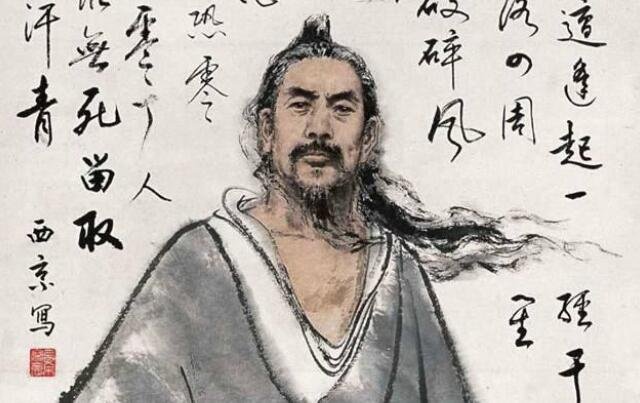 遭逢起一經干
落四周星
破碎風
恐零
零丁人
無死畱取
汗青
西京寫